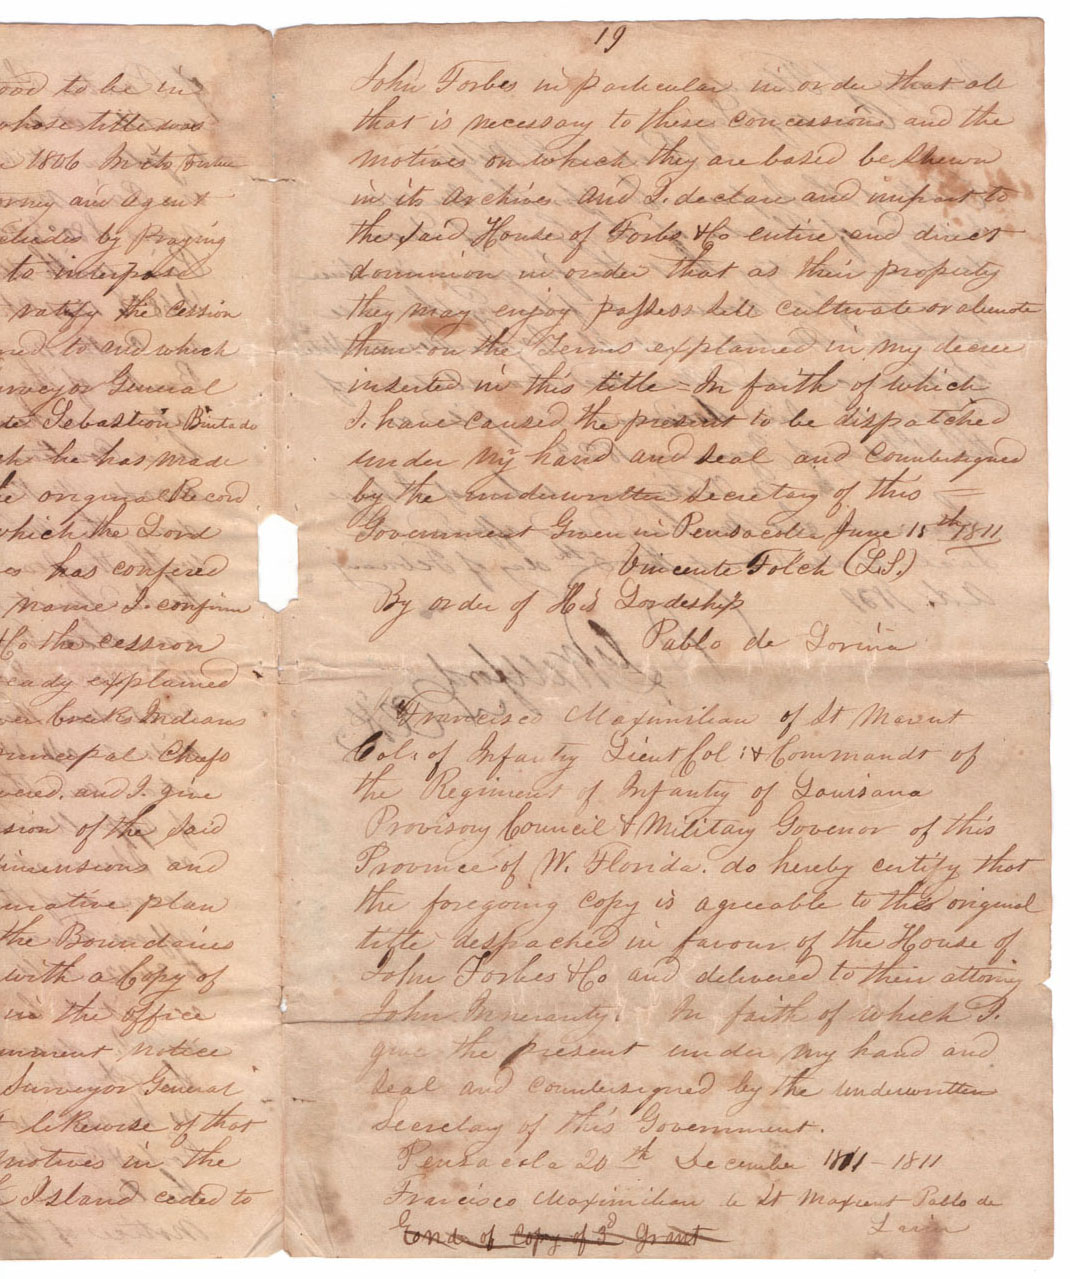 ood to be in
whose title was
1806 In its
orney and agent
cludes by praying
to interpose
ratify the Cession
red to and which
urveyor General
de Sebastion Bintado
ch he has made
he original Record
which the Lord
es has confered
name I. confirm
& Co the cession
eady explained
wer Creeks Indians
rincipal Chefs
vered. and I give
sion of the said
dimensions and
urative plan
the Boundaries
with a Copy of
in the office
rnment, notice
Surveyor General
t likewise of that
motives in the
Island ceded to
19
John Forbes in particular in order that all
that is necessary to these concessions and the
motives on which they are based be shewn
in its archives and I. declare and impart to
the said House of Forbes & Co entire and direct
dominion in order that as their property
they may enjoy possess sell cultivate or alienate
them on the Terms explained in my decree
inserted in this title - In faith of which
I. have caused the present to be dispatched
under my hand and seal and Countersigned
by the underwritten Secretary of this =
Government Given in Pensacola June 15th 1811
Vincente Folch (L.S.)
By order of His Lordeship
Pablo de Lorina
Francisco Maximilian of St Maxent
Col: of Infantry Lieut Col: & Commandt of
the Regiment of Infantry of Louisana
Provisory Council & Military Govenor of this
Province of W. Florida. do hereby certify that
the foregoing copy is agreeable to this original
title despached in favour of the House of
John Forbes & Co and delivered to their attorny
John Innerarity. In faith of which I.
give the present under my hand and
seal and countersigned by the underwritten
Secretay of this Government.
Pensacola 20th December 1811 - 1811
Francisco Maximilian de St Maxent Pablo de
Larin
End of Copy of 3d Grant